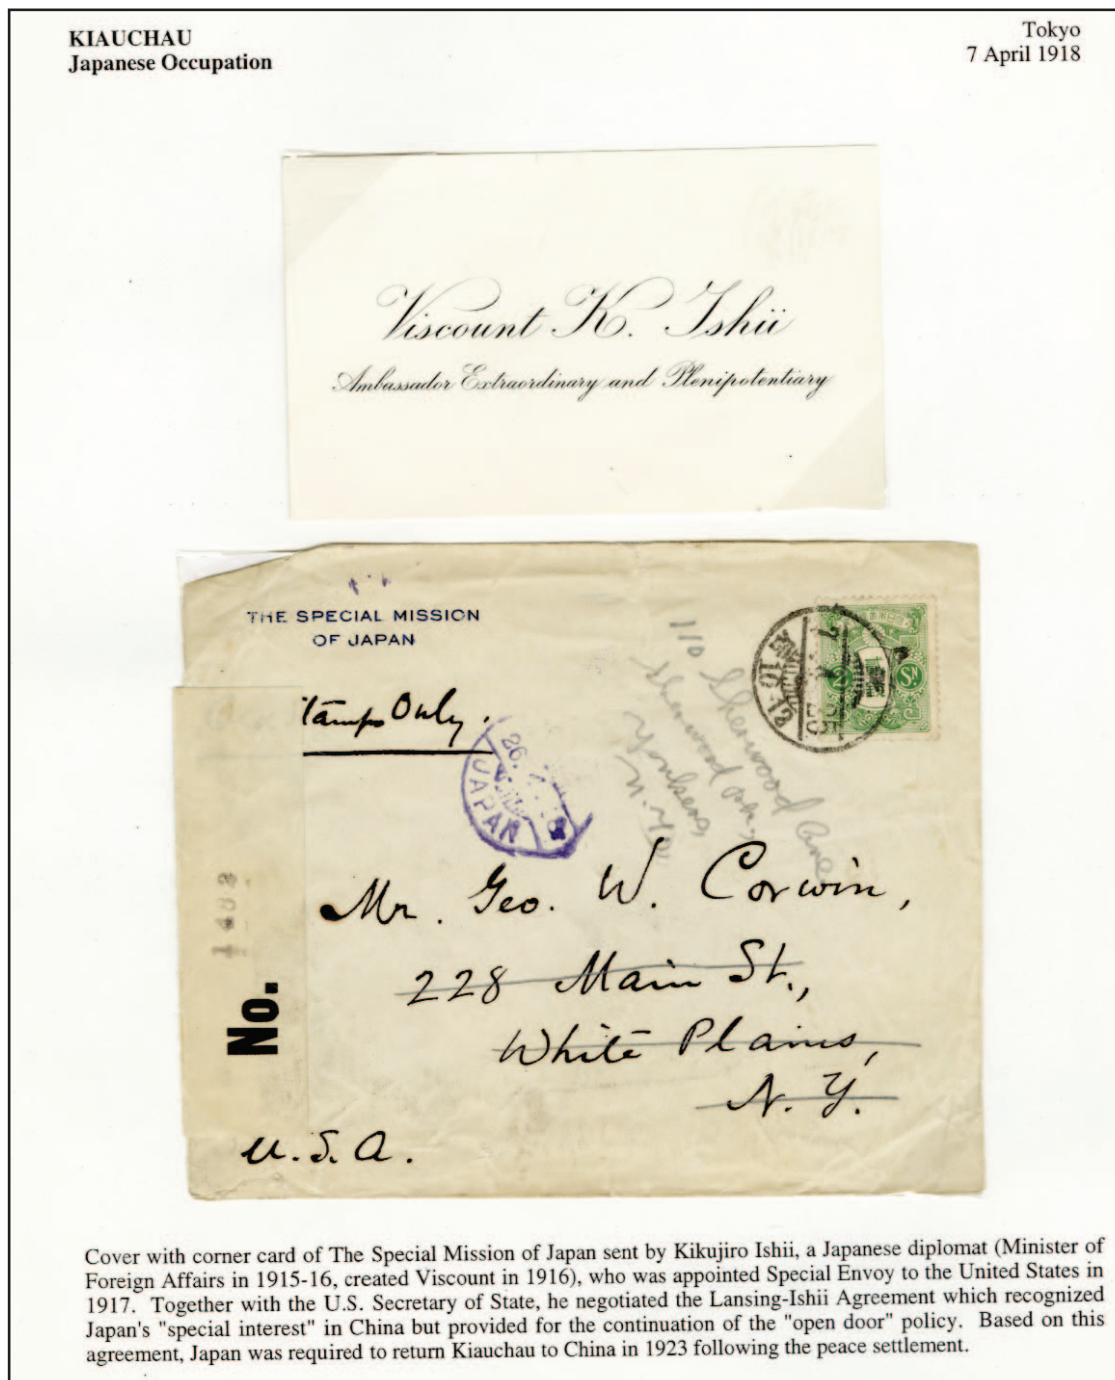 KIAUCHAU
Japanese Occupation
Tokyo
7 April 1918
Viscount K. Ishii
Ambassador Extraordinary and Plenipotentiary
THE SPECIAL MISSION
OF JAPAN
tamps Only.
110 Sherwood Ave
Sherwood Pk,
Yonkers,
N.Y.
26.
JAPAN
Mr. Geo. W. Corwin,
228 Main St.,
White Plains,
N. Y.
U.S.A.
No.
1483
Cover with corner card of The Special Mission of Japan sent by Kikujiro Ishii, a Japanese diplomat (Minister of
Foreign Affairs in 1915-16, created Viscount in 1916), who was appointed Special Envoy to the United States in
1917. Together with the U.S. Secretary of State, he negotiated the Lansing-Ishii Agreement which recognized
Japan's "special interest" in China but provided for the continuation of the "open door" policy. Based on this
agreement, Japan was required to return Kiauchau to China in 1923 following the peace settlement.